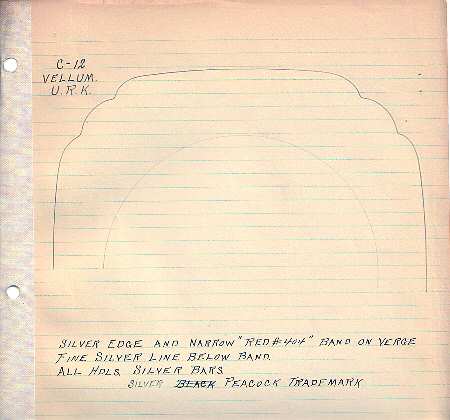 C-12
VELLUM.
U.R.K.
SILVER EDGE AND NARROW "RED #404" BAND ON VERGE
FINE SILVER LINE BELOW BAND
ALL HDLS. SILVER BARS
SILVER BLACK PEACOCK TRADEMARK